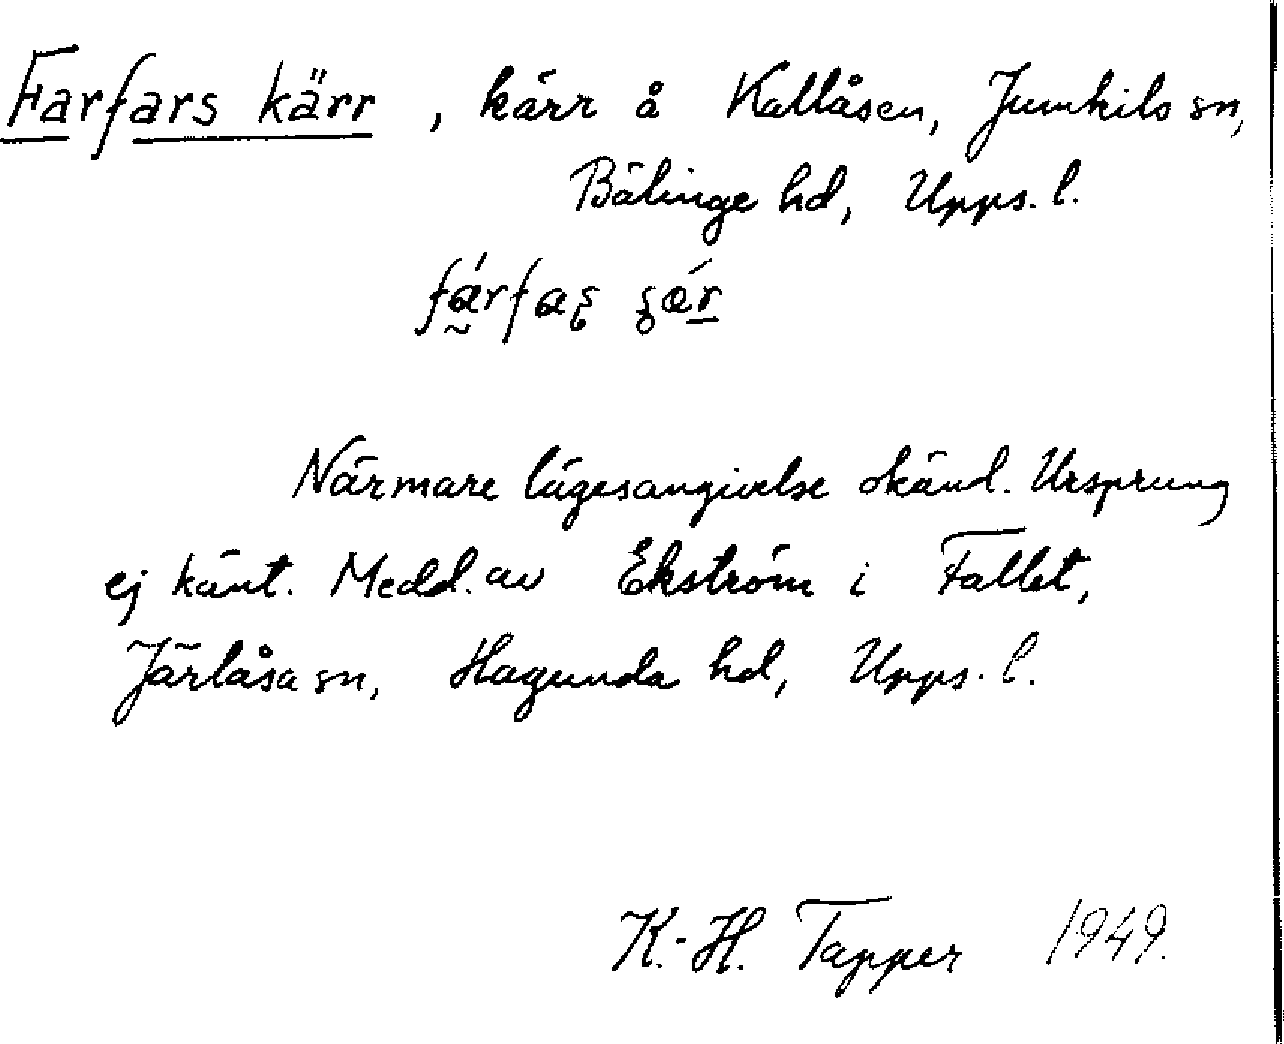 Farfars kärr, kärr å Kallåsen, Jumkils sn,
Bälinge hd, Upps. l.
Närmare lägesangivelse okänd. Ursprung
ej känt. Medd. av Ekström i Fallet,
Järlåsa sn, Hagunda hd, Upps. l.
K.-H. Tapper 1949.